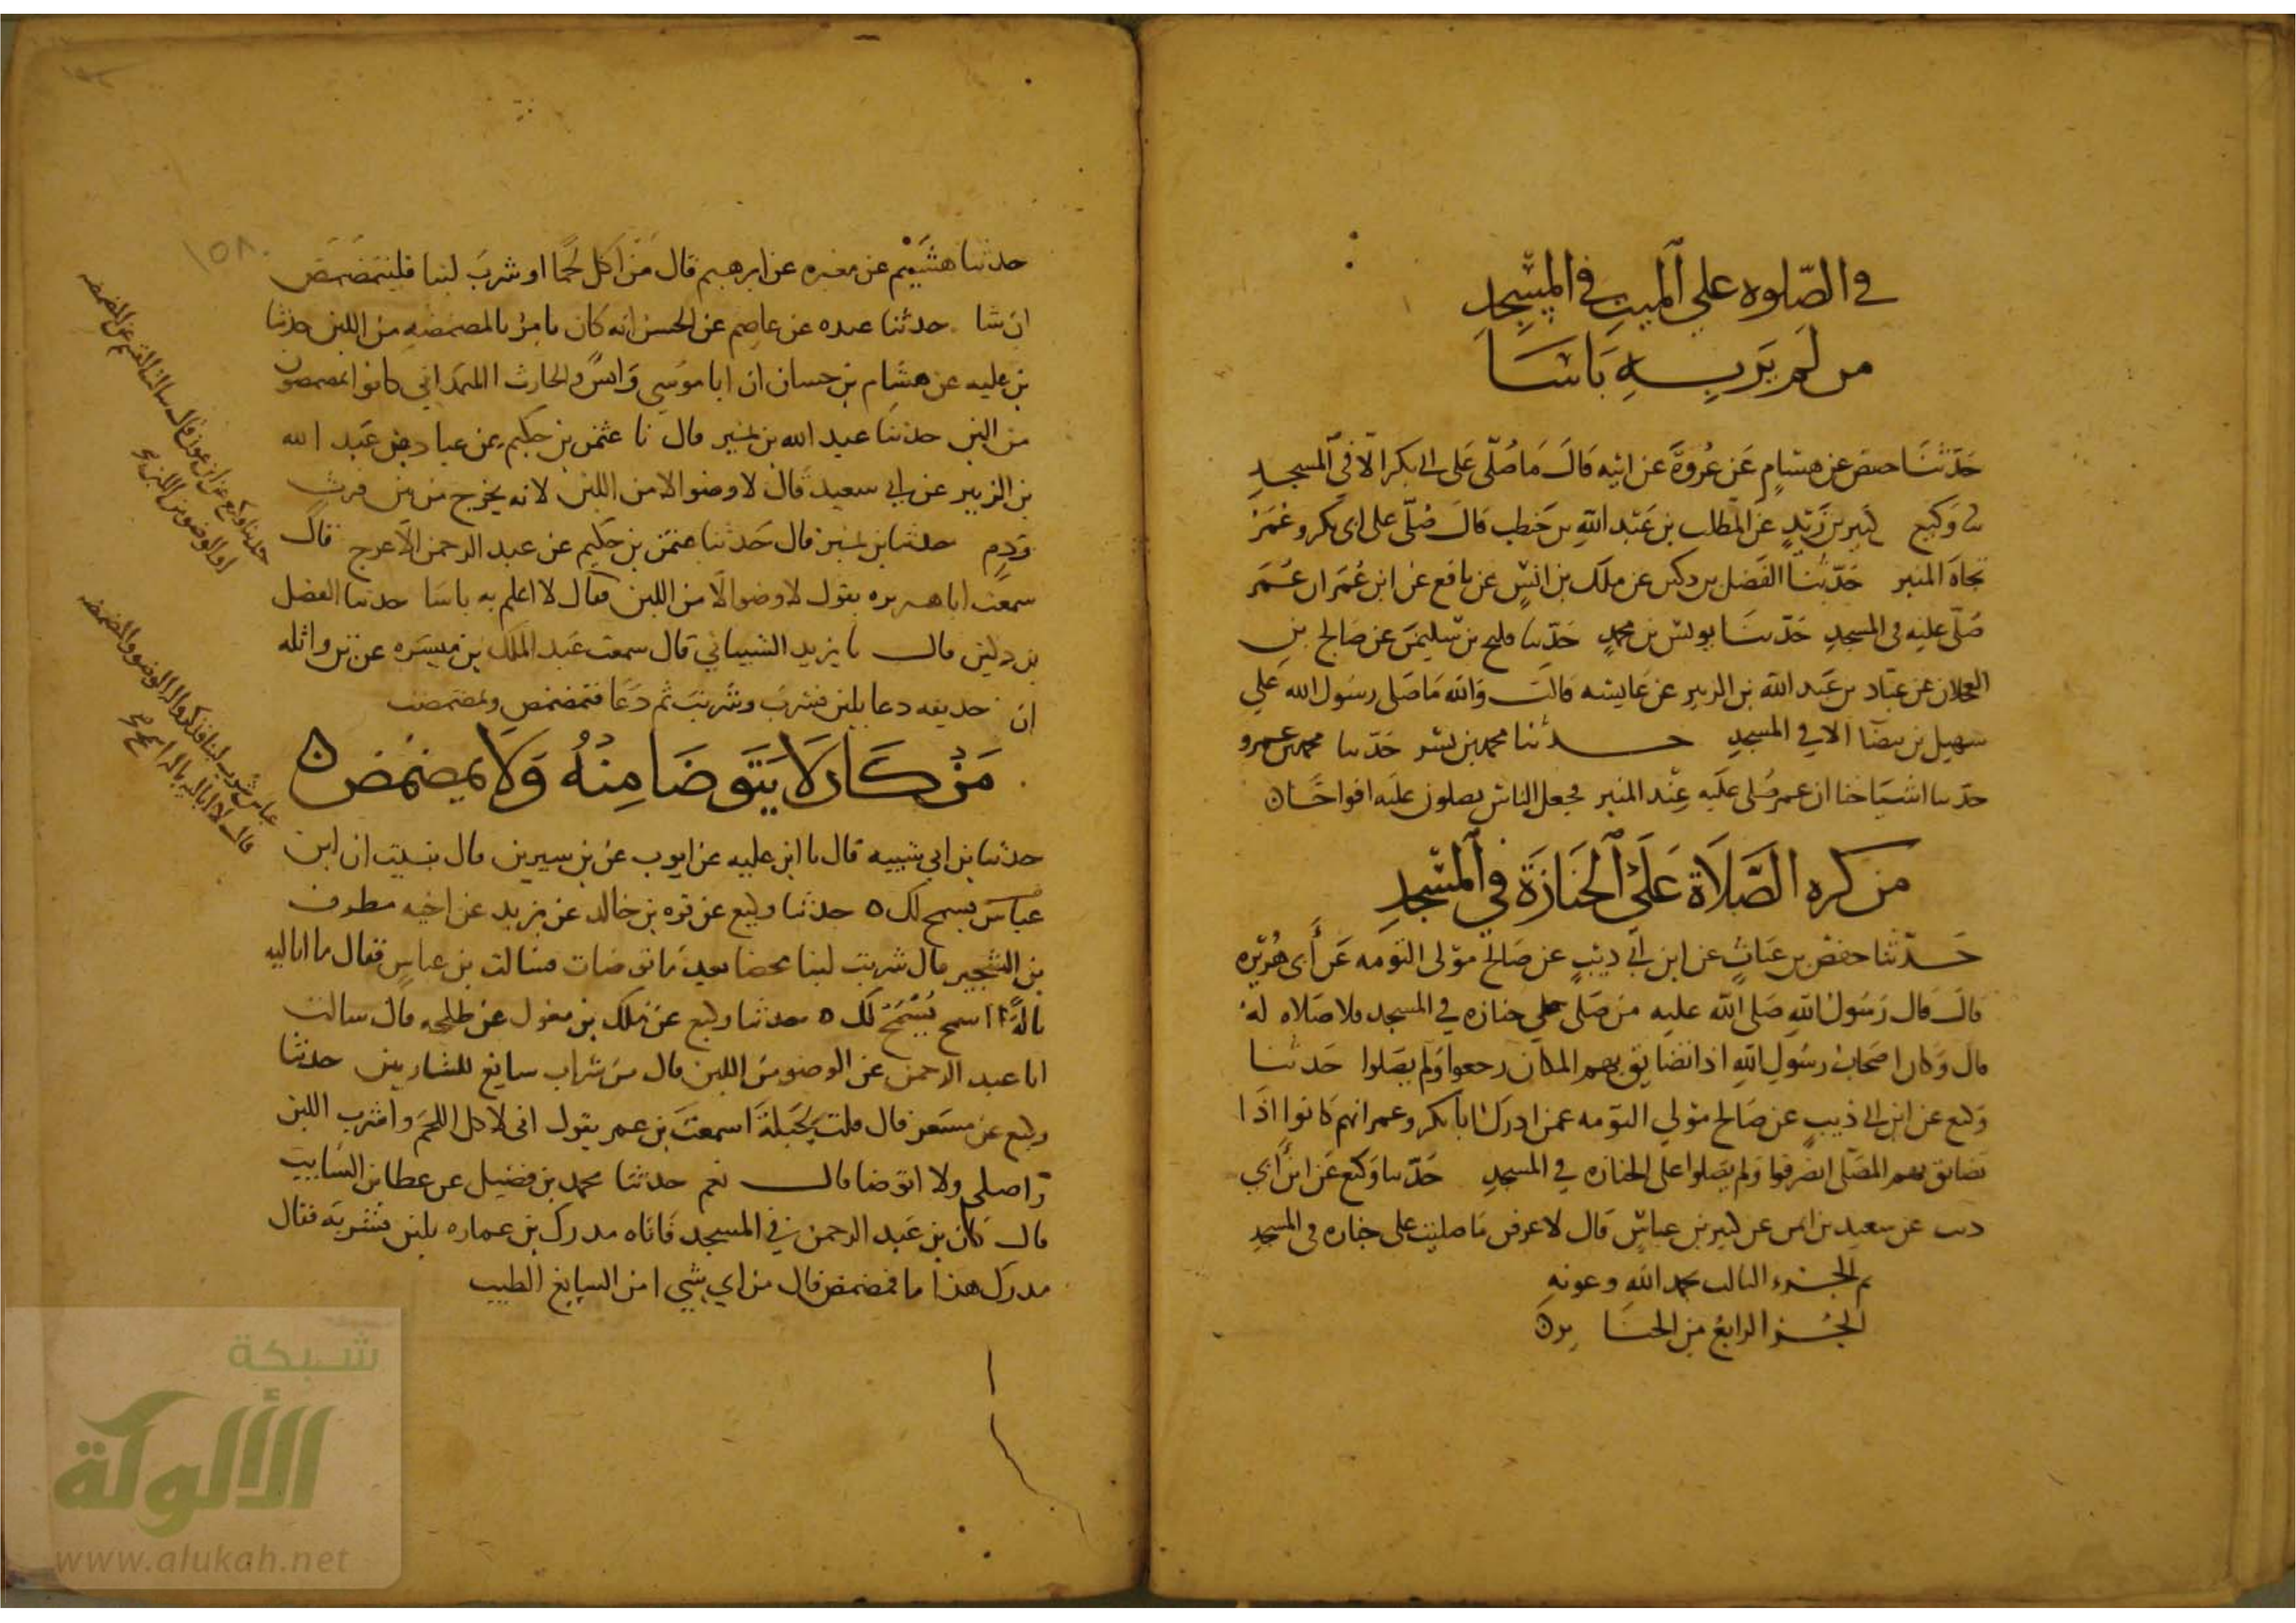 في الصلوه علي الميت في المسجد
من لم ير به باسا
حدثنا حفص عن هشام عن عروة عن ابيه قال ما صلي على ابي بكر الا في المسجد
وكيع كثير بن زيد عن المطلب بن عبد الله بن حنطب قال صلي على ابي بكر وعمر
تجاه المنبر حدثنا الفضل بن دكين عن ملك بن انس عن نافع عن ابن عمر ان عمر
صلي عليه في المسجد حدثنا يونس بن محمد حدثنا فليح بن سليمن عن صالح بن
العجلان عن عباد بن عبد الله بن الزبير عن عايشه قالت والله ما صلى رسول الله علي
سهيل بن بيضا الا في المسجد حدثنا محمد بن بشر حدثنا محمد بن عمرو
حدثنا اشياخنا ان عمر صلى عليه عند المنبر فجعل الناس يصلون عليه افواجا
من كره الصلاة على الجنازة في المسجد
حدثنا حفص بن غياث عن ابن ابي ذيب عن صالح مولى التومه عن أبي هريره
قال قال رسول الله صلى الله عليه من صلى علي جنازه في المسجد فلا صلاه له
قال وكان اصحاب رسول الله اذا تضايق بهم المكان رجعوا ولم يصلوا حدثنا
وكيع عن ابن ابي ذيب عن صالح مولي التومه عمن ادرك ابا بكر وعمر انهم كانوا اذا
تضايق بهم المصلى انصرفوا ولم يصلوا على الجنازه في المسجد حدثنا وكيع عن ابن أبي
ديب عن سعيد بن ايمن عن كثير بن عباس قال لاعرفن ما صليت على جنازه في المسجد
تم الجزء الثالث بحمد الله وعونه
الجزو الرابع من الجنا يز
١٥٨
حدثنا هشيم عن مغيره عن ابرهيم قال من اكل لحما او شرب لبنا فليتمضمض
ان شا حدثنا عبده عن عاصم عن الحسن انه كان يامر بالمضمضه من اللبن حدثنا
بن عليه عن هشام بن حسان ان ابا موسي وانس والحارث الهمداني كانوا يمضمضون
من اللبن حدثنا عبد الله بن نمير قال نا عثمن بن حكيم عن عباد بن عبد الله
بن الزبير عن ابي سعيد قال لا وضو الا من اللبن لانه يخرج من بين فرث
ودم حدثنا بن نمير قال حدثنا عثمن بن حكيم عن عبد الرحمن الاعرج قال
سمعت ابا هريره يقول لا وضو الا من اللبن فقال لا اعلم به باسا حدثنا الفضل
بن دكين قال نا يزيد الشيباني قال سمعت عبد الملك بن ميسره عن بن واثله
ان حذيفه دعا بلبن فشرب وشربت ثم دعا فتمضمض وتمضمضت
من كان لا يتوضا منه ولا يمضمض
حدثنا بن ابي شيبه قال نا ابن عليه عن ايوب عن بن سيرين قال نبيت ان ابن
عباس يسمح لك حدثنا وكيع عن قره بن خالد عن يزيد عن اخيه مطرف
بن الشخير قال شربت لبنا محضا بعد ما توضات فسالت بن عباس فقال ما اباليه
باله اسمح يسمح لك حدثنا وكيع عن ملك بن مغول عن طلحه قال سالت
ابا عبد الرحمن عن الوضو من اللبن قال من شراب سايغ للشاربين حدثنا
وكيع عن مسعر قال قلت لجبلة اسمعت بن عمر يقول اني لاكل اللحم واشرب اللبن
واصلي ولا اتوضا قال نعم حدثنا محمد بن فضيل عن عطا بن السايب
قال كان بن عبد الرحمن في المسجد فاتاه مدرك بن عماره بلبن فشربه فقال
مدرك هذا ما فمضمض قال من اي شي امن السايغ الطيب
حدثنا وكيع عن ابن عون قال سالنا القسم عن المضمضه
او الوضو من اللبن
عباس شرب لبنا فذكروا له الوضو والمضمضه
قال لا اباليه باله اسمح
شبكة
الألوكة
www.alukah.net